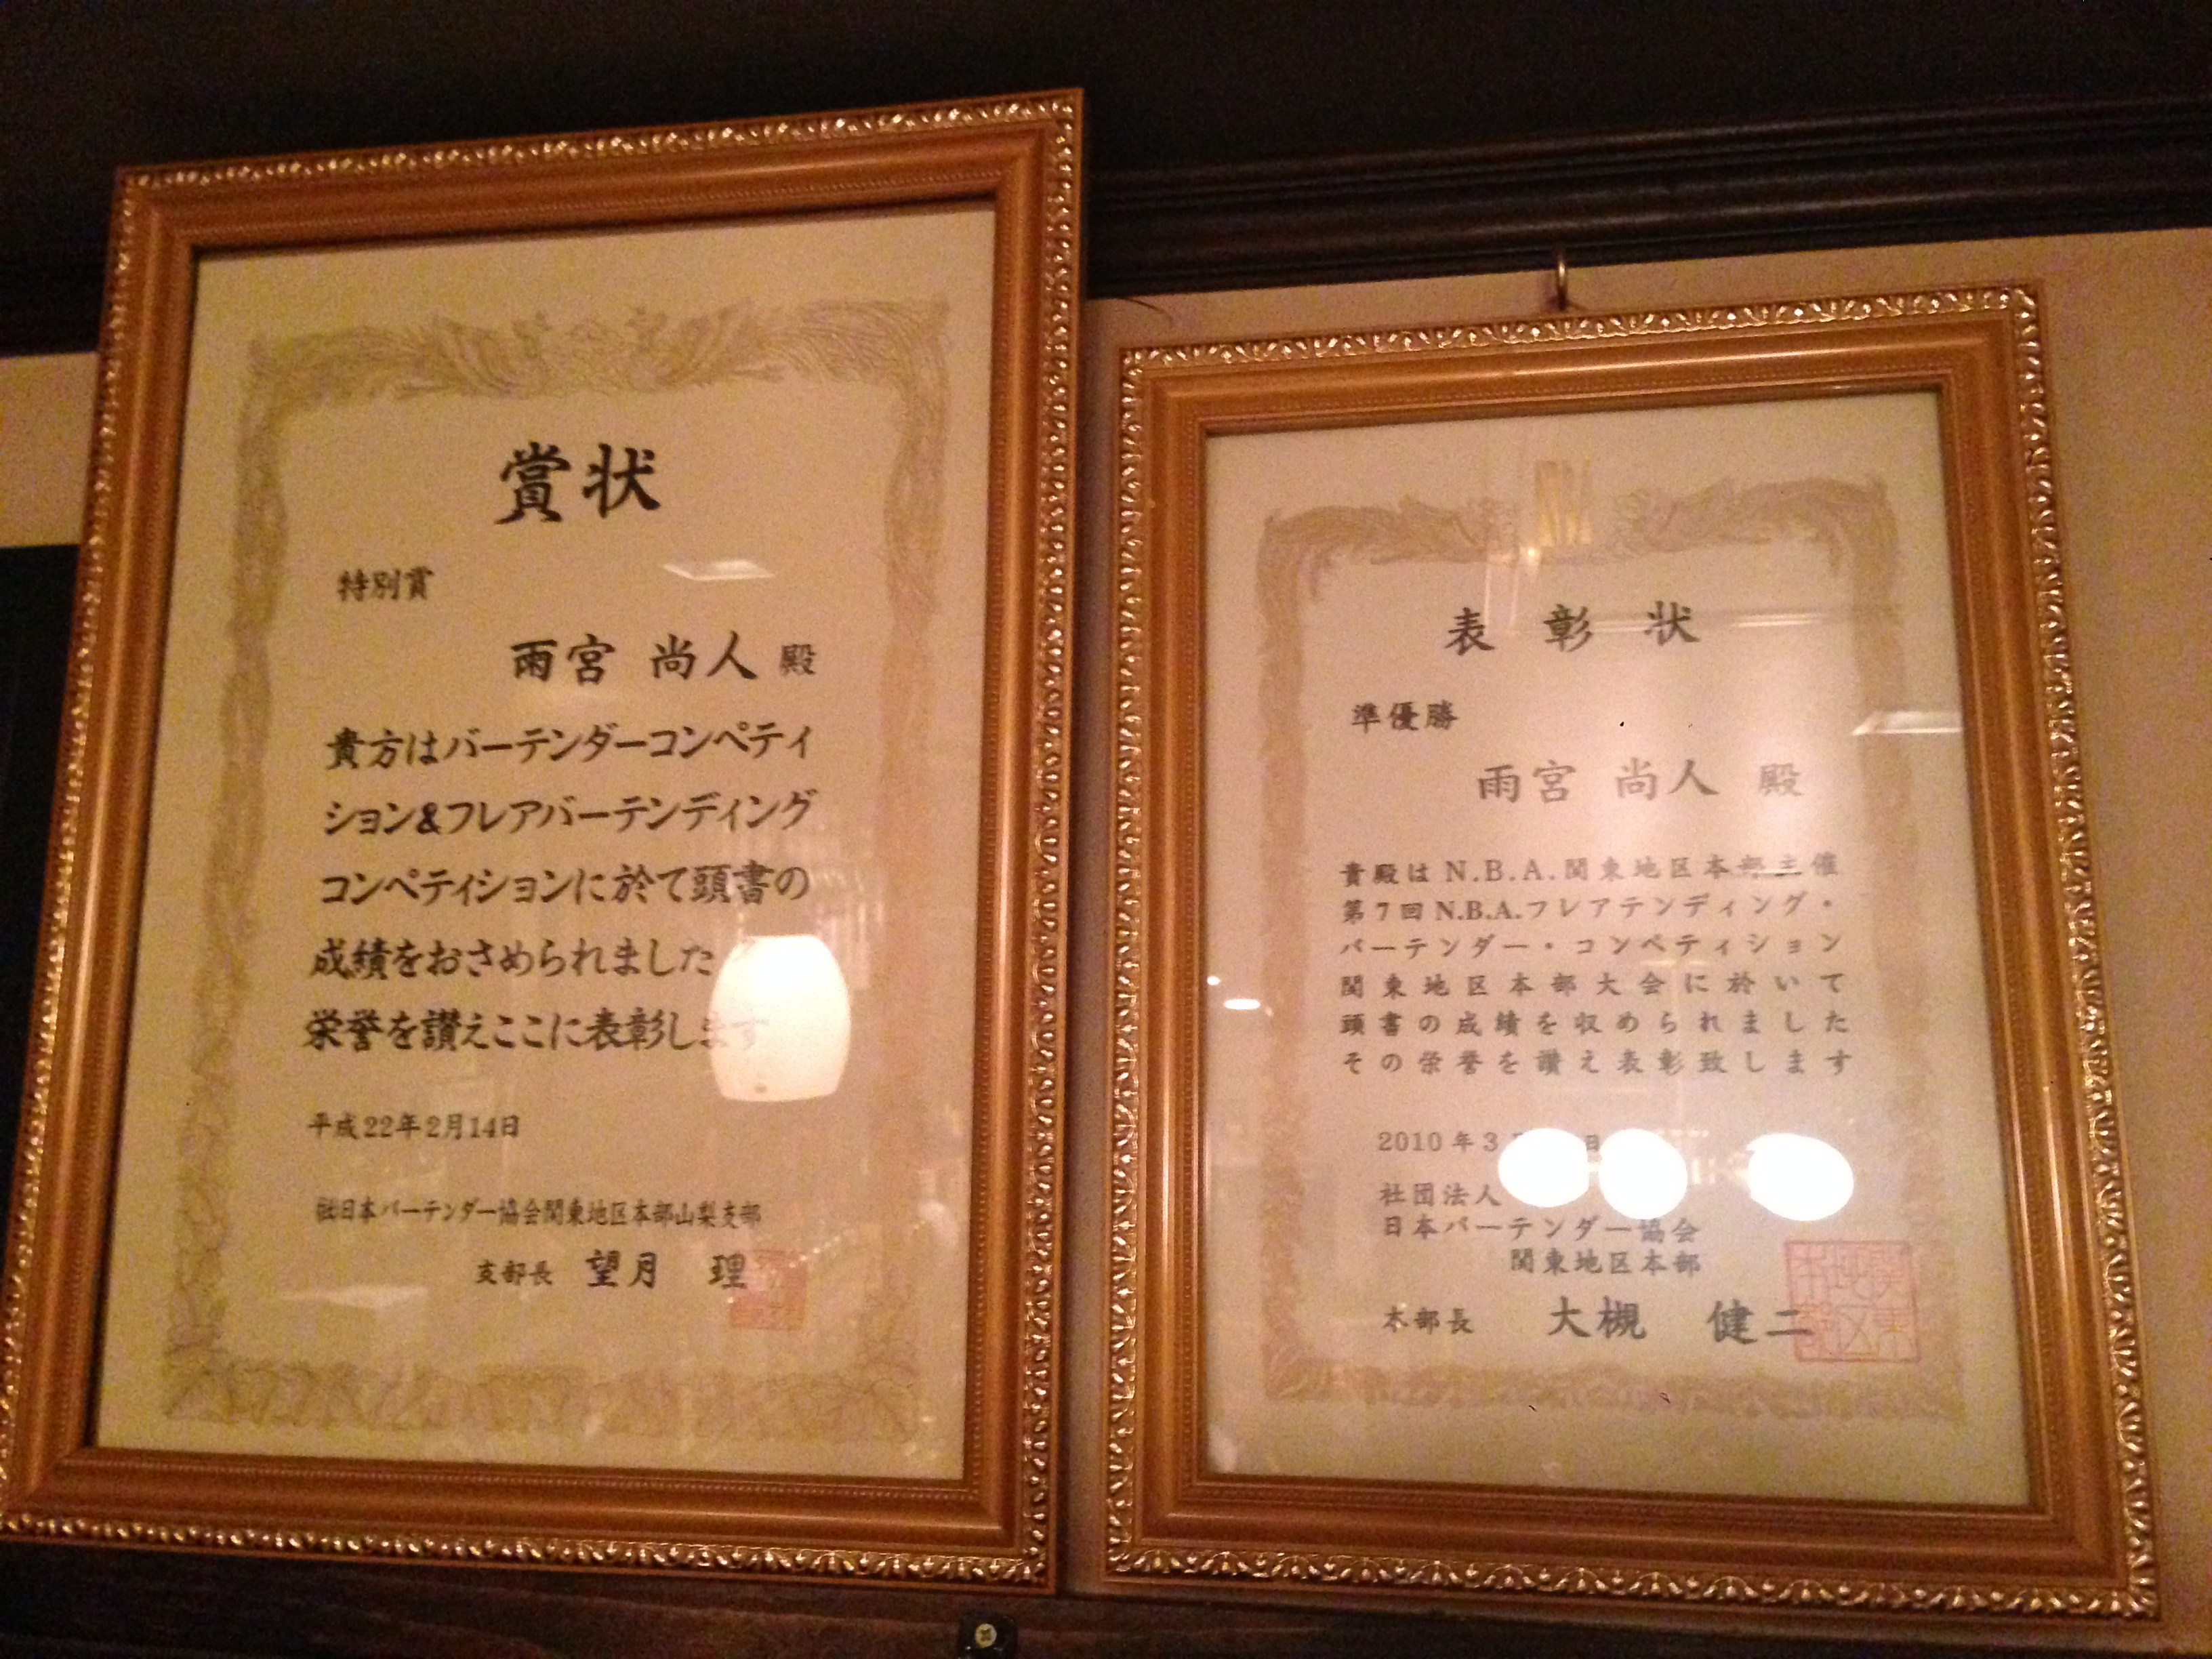 賞状
特別賞
雨宮 尚人 殿
貴方はバーテンダーコンペティ
ション&フレアバーテンディング
コンペティションに於て頭書の
成績をおさめられました
栄誉を讃えここに表彰します
平成22年2月14日
㈳日本バーテンダー協会関東地区本部山梨支部
支部長 望月 理
表彰状
準優勝
雨宮 尚人 殿
貴殿はN.B.A.関東地区本部主催
第7回N.B.A.フレアテンディング・
バーテンダー・コンペティション
関東地区本部大会に於いて
頭書の成績を収められました
その栄誉を讃え表彰致します
2010年3 日
社団法人
日本バーテンダー協会
関東地区本部
本部長 大槻 健二